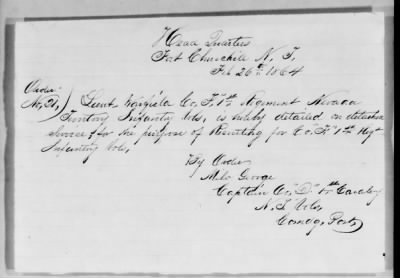 Head Quarters
Fort Churchill N. T.
Feb 26th 1864
Order
No. 21, } Lieut Warfield Co. F, 1st Regiment Nevada
Territory Infantry Vols, is hereby detailed on detached
service, for the purpose of Recruiting for Co. "F" 1st Regt
Infantry Vols,
By Order
Milo George
Captain Co. "D" 1st Cavalry
N. T. Vols,
Comdg, Post,